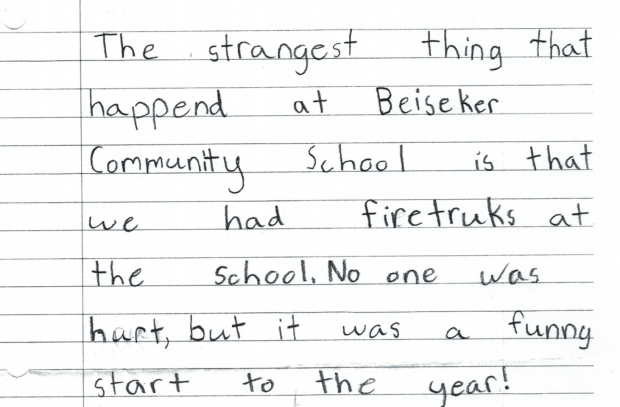 The strangest thing that
happend at Beiseker
Community School is that
we had firetruks at
the school. No one was
hurt, but it was a funny
start to the year!